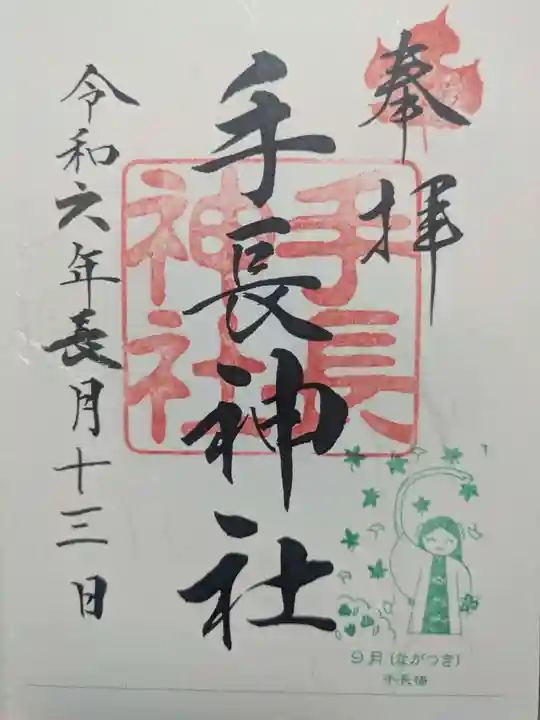 奉拝
手長神社
手長
神社
令和六年長月十三日
9月(ながつき)